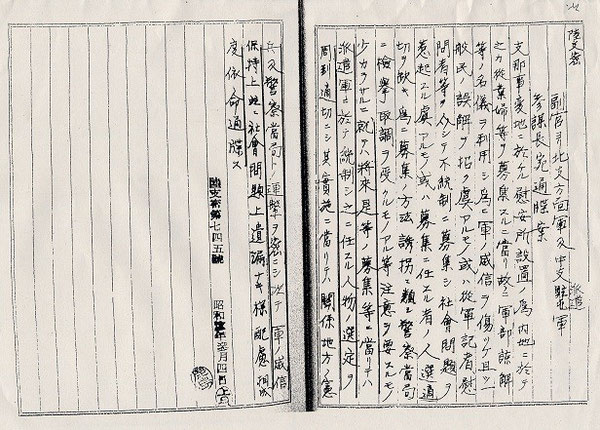 陸支密
副官ヨリ北支方面軍及中支派遣軍
参謀長宛通牒案
支那事変地ニ於ケル慰安所設置ノ為内地ニ於テ
之カ従業婦等ヲ募集スルニ当リ故ラニ軍部諒解
等ノ名儀ヲ利用シ為ニ軍ノ威信ヲ傷ツケ且ツ一
般民ノ誤解ヲ招ク虞アルモノ或ハ従軍記者慰
問者等ヲ介シテ不統制ニ募集シ社会問題ヲ
惹起スル虞アルモノ或ハ募集ニ任スル者ノ人選適
切ヲ欠キ為ニ募集ノ方法誘拐ニ類シ警察当局
ニ検挙取調ヲ受クルモノアル等注意ヲ要スルモノ
少カラサルニ就テハ将来是等ノ募集等ニ当リテハ
派遣軍ニ於テ統制シ之ニ任スル人物ノ選定ヲ
周到適切ニシ其実施ニ当リテハ関係地方ノ憲
兵及警察当局トノ連繋ヲ密ニシ以テ軍ノ威信
保持上並ニ社会問題上遺漏ナキ様配慮相成
度依命通牒ス
陸支密第七四五號
昭和拾参年参月四日